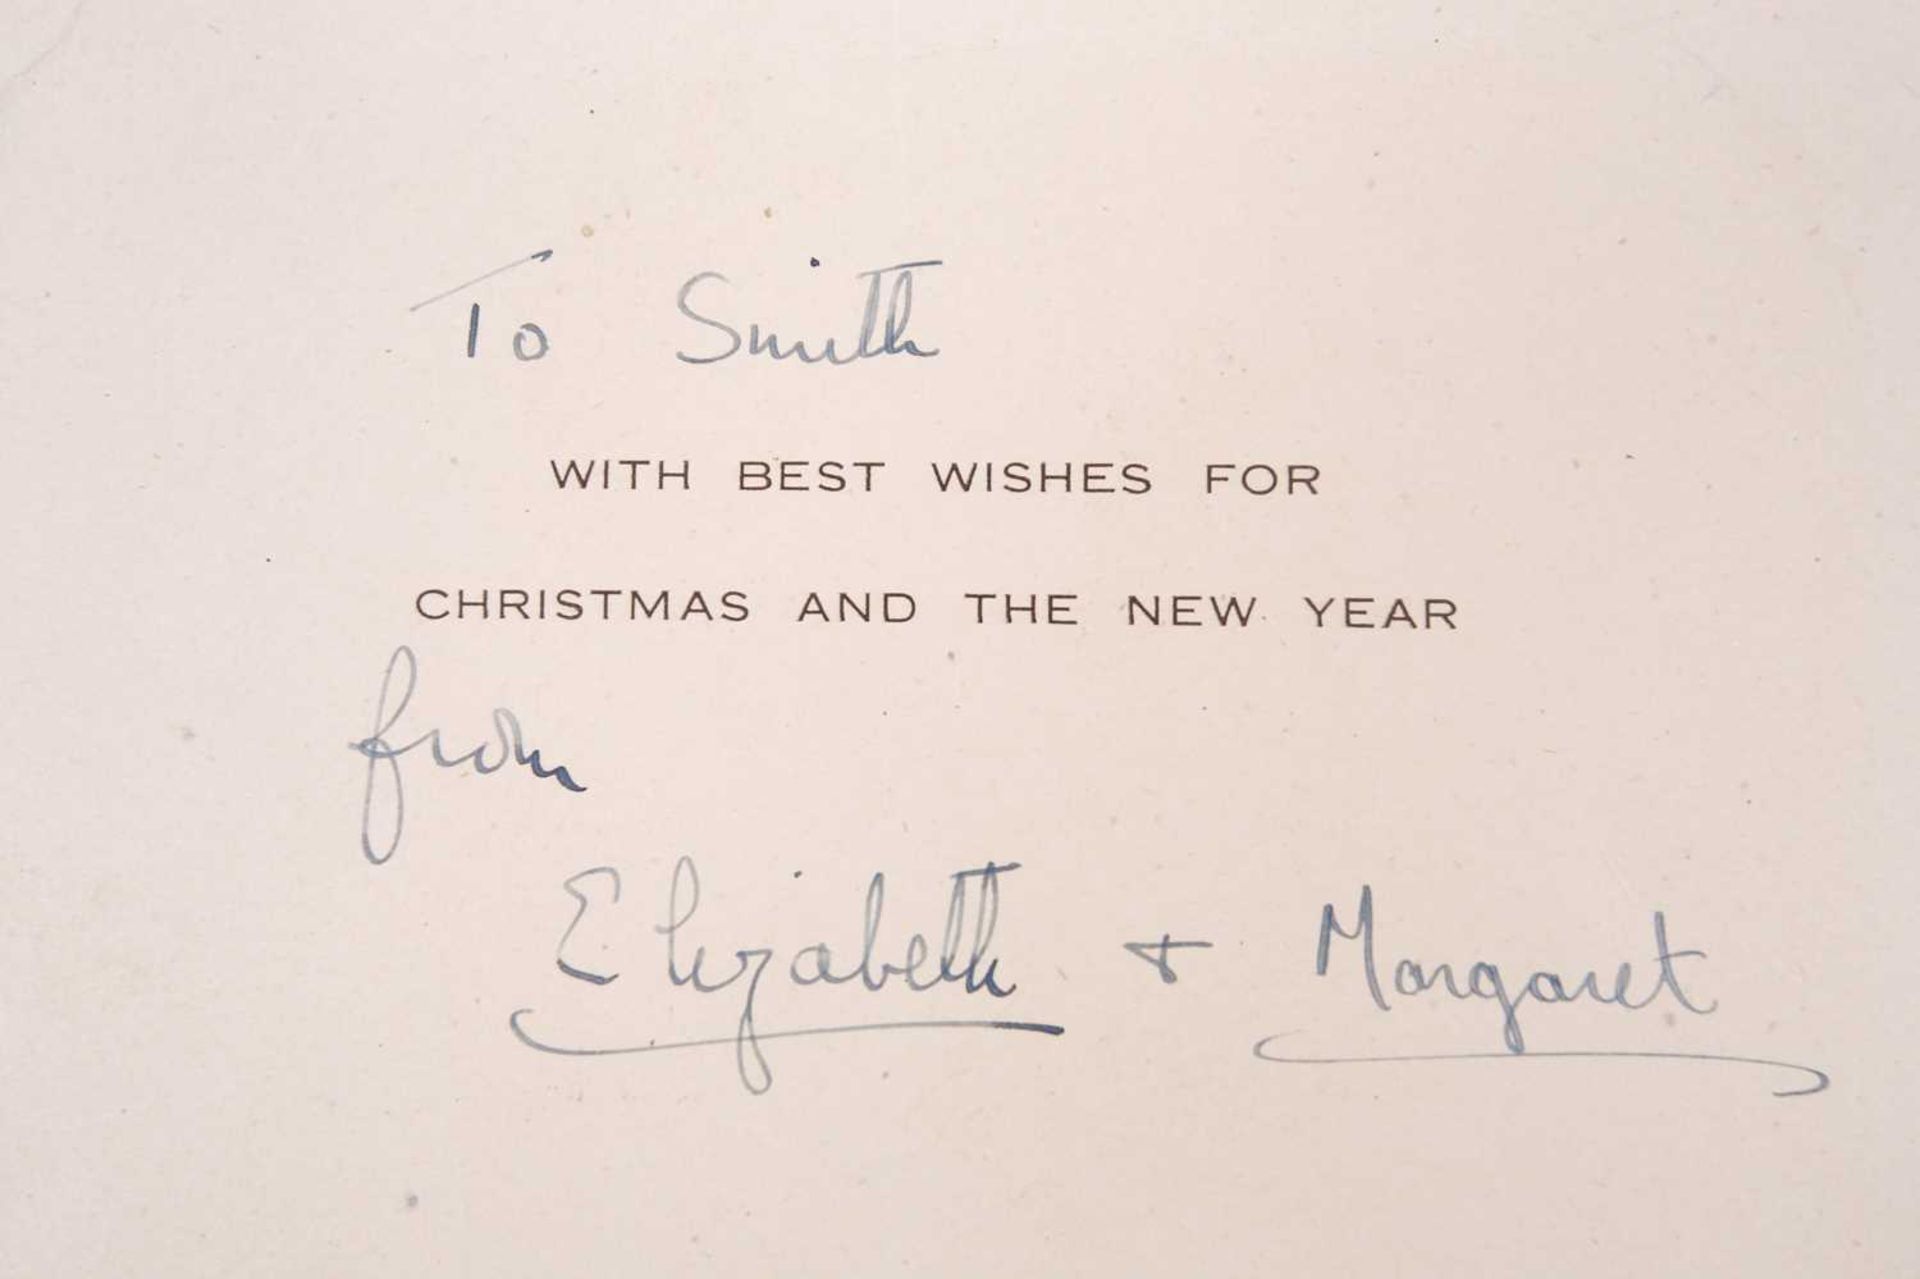 To Smith
WITH BEST WISHES FOR
CHRISTMAS AND THE NEW YEAR
from
Elizabeth + Margaret